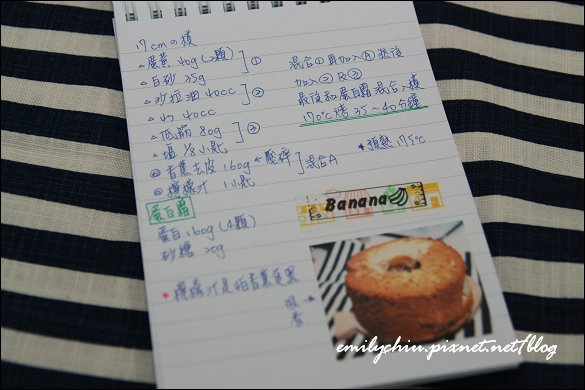 17cmの模
△蛋黃 40g(2顆)
△白砂 35g ①
△沙拉油 40cc
△水 40cc ②
△低筋 80g
△塩 1/8小匙 ③
◎香蕉去皮 160g ← 壓碎
◎檸檬汁 1小匙 混合A
混合①再加入Ⓐ 然後
加入②及③
最後和蛋白霜混合入模
170℃烤35~40分鐘
*預熱 175℃
蛋白霜
蛋白 160g(4顆)
砂糖 20g
*檸檬汁是怕香蕉變黑
Banana
emilychiu.pixnet.net/blog